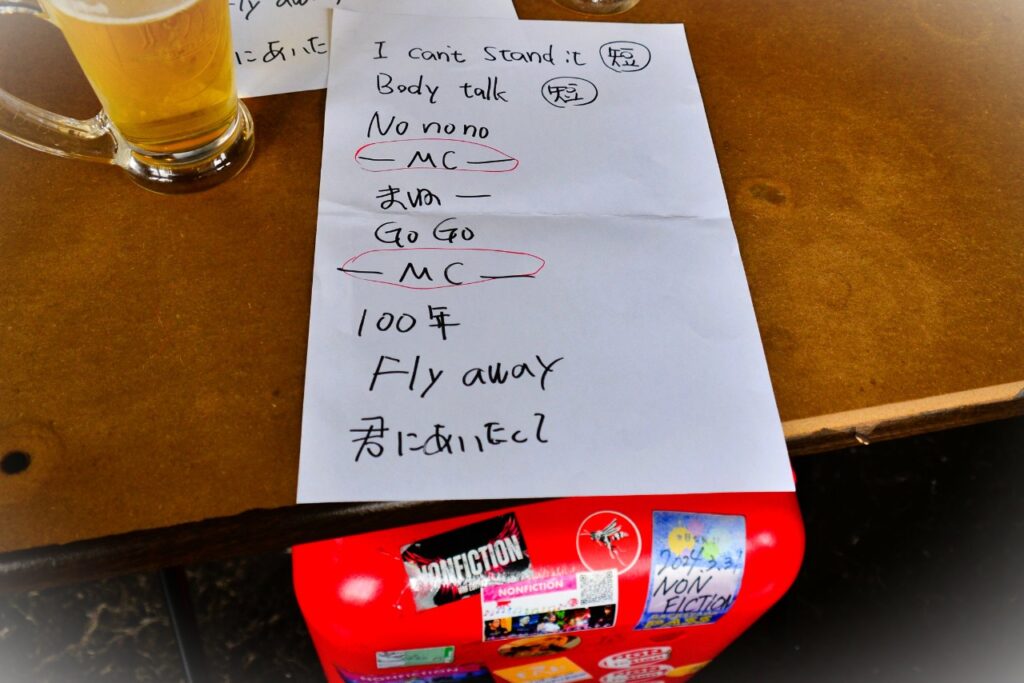 Fly away
にあいた
I can't stand it 短
Body talk 短
No no no
— MC —
まねー
Go Go
— MC —
100年
Fly away
君にあいたくて
NONFICTION
NONFICTION
2024.3.31
NON
FICTION
PASS
NONFICTION